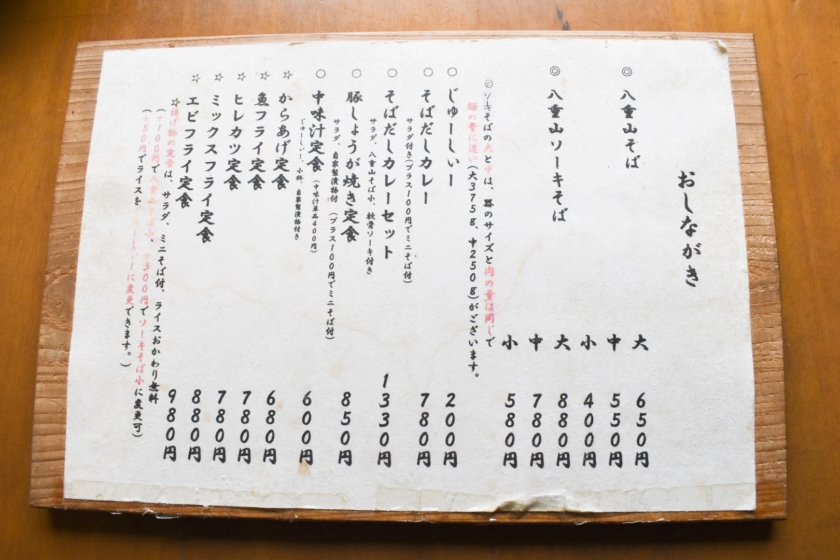 おしながき
◎ 八重山そば 大 650円
中 550円
小 400円
◎ 八重山ソーキそば 大 880円
中 780円
小 580円
◎ソーキそばの大と中は、器のサイズと肉の量は同じで
麺の量に違い(大375g、中250g)がございます。
○ じゅーしぃー 200円
○ そばだしカレー 780円
サラダ付き(プラス100円でミニそば付)
○ そばだしカレーセット 1330円
サラダ、八重山そば小、軟骨ソーキ付き
○ 豚しょうが焼き定食 850円
サラダ、自家製漬物付 (プラス100円でミニそば付)
○ 中味汁定食(中味汁単品400円) 600円
じゅーしぃー、小鉢、自家製漬物付き
☆ からあげ定食 680円
☆ 魚フライ定食 680円
☆ ヒレカツ定食 780円
☆ ミックスフライ定食 780円
☆ エビフライ定食 880円
980円
☆揚げ物の定食は、サラダ、ミニそば付、ライスおかわり無料
(+100円で八重山そば小、+300円でソーキそば小に変更可)
(+50円でライスをじゅーしぃーに変更できます。)